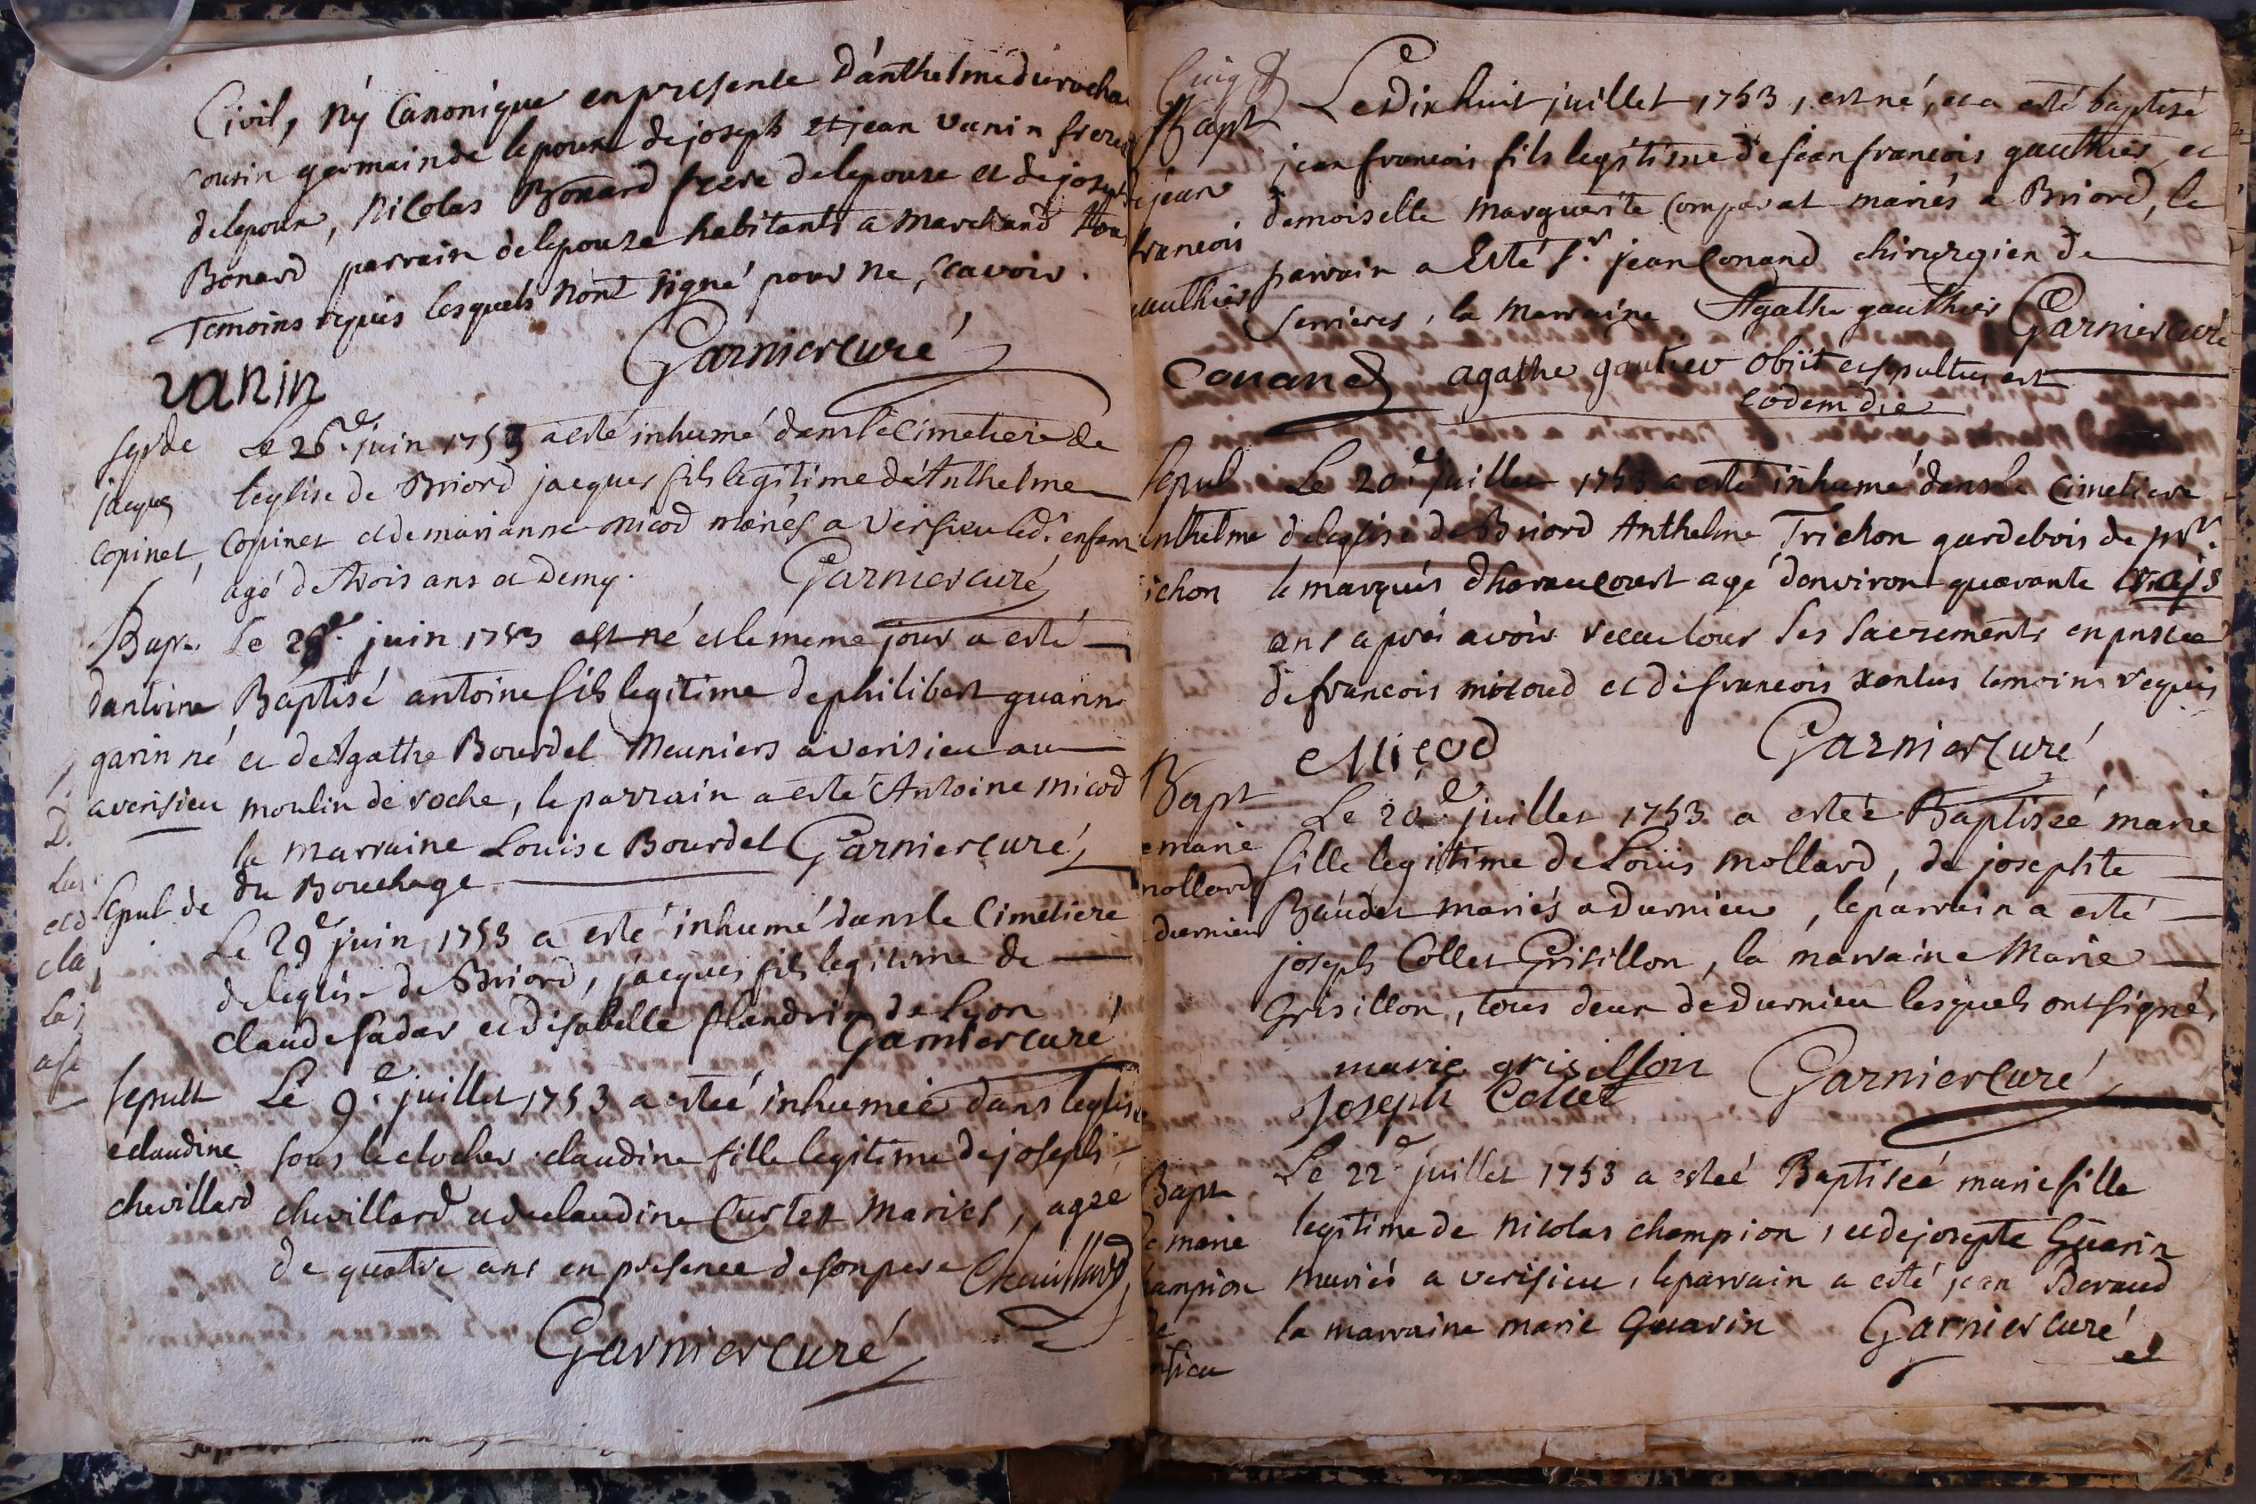 Civil, ny Canonique en presente d'anthelme durocha
cousin germain de lepoux de joseph et jean vanin freres
de lepoux, Nicolas Bonard frere de lepouse et de joseph
Bonard parrain de lepouze habitants a marchand
Temoins requis lesquels nont signé pour ne, scavoir.
Garnier curé
vanin
sep de
jacques
copinet,
Le 26e juin 1753 a esté inhumé dans le Cimetiere de
leglise de Briord jacques fils legitime d'Anthelme
Copinet et de marianne micod mariés a Versieu led. enfant
agé de trois ans et demy.
Garnier curé
Bapt.
dantoine
garin né
a verisieu
Le juin 1753 est né et le meme jour a esté
Baptisé antoine fils legitime de philibert guarin
et de Agathe Bourdel Meuniers a verisieu au
moulin de roche, le parrain a este Antoine micod
la marraine Louise Bourdel Garnier curé
du Bouchage
sepul de
Le 29e juin 1753 a esté inhumé dans le Cimetiere
de leglise de Briord, jacques fils legitime de
claude fadar et d'isabelle flandrin de Lyon
Garnier curé
sepult
claudine
chevillard
Le 9e juillet 1753 a esteé inhumeé dans leglise
sous le clocher claudine fille legitime de joseph
chevillard et de claudine Curtet mariés, agee
de quatre ans en presence de son pere Chevillard
Garnier curé
Bapt
de jean
francois
gauthier
Le dix huit juillet 1753, est né, et a esté baptisé
jean francois fils legitime de jean francois gauthier et
demoiselle marguerite Comparat mariés a Briord, le
parrain a esté sr. jean Conand chirurgien de
Serrieres, la marraine Agathe gauthier Garnier curé
Conand agathe gautier obiit et sepultus est
eodem die
sepul
anthelme
richon
Le 20e juillet 1753 a esté inhumé dans le cimetiere
de leglise de Briord Anthelme Trichon gardebois de mr.
le marquis d'haraucourt agé denviron quarante trois
ans apres avoir receu tous ses sacrements en presence
de francois micoud et de francois xantus temoins requis
Micod
Garnier curé
Bapt
de marie
mollard
durnieu
Le 20e juillet 1753 a esteé Baptiseé marie
fille legitime de Louis mollard, de josephte
Baudet mariés a Durnieu, le parrain a esté
joseph Collet Grisillon, la marraine Marie
Grisillon, tous deux de Durnieu lesquels ont signé,
marie grisillon
Joseph Collet
Garnier curé
Bapt
de marie
hampion
de
Le 22e juillet 1753 a esteé Baptiseé marie fille
legitime de nicolas champion, et de josepte Guarin
mariés a verisieu, le parrain a esté jean Beraud
la marraine marie Guarin
Garnier curé